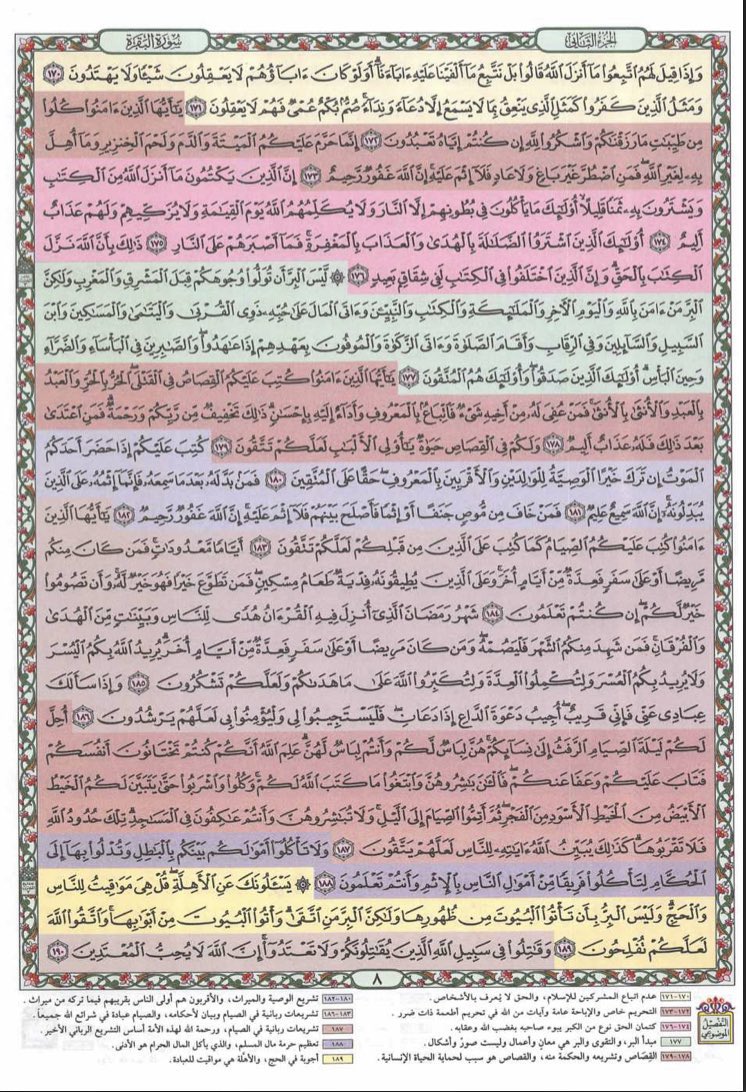 الجزء الثاني
سورة البقرة
وَإِذَا قِيلَ لَهُمُ اتَّبِعُوا مَا أَنزَلَ اللَّهُ قَالُوا بَلْ نَتَّبِعُ مَا أَلْفَيْنَا عَلَيْهِ ءَابَاءَنَا أَوَلَوْ كَانَ ءَابَاؤُهُمْ لَا يَعْقِلُونَ شَيْئًا وَلَا يَهْتَدُونَ ١٧٠
وَمَثَلُ الَّذِينَ كَفَرُوا كَمَثَلِ الَّذِي يَنْعِقُ بِمَا لَا يَسْمَعُ إِلَّا دُعَاءً وَنِدَاءً صُمٌّ بُكْمٌ عُمْيٌ فَهُمْ لَا يَعْقِلُونَ ١٧١ يَٰأَيُّهَا الَّذِينَ ءَامَنُوا كُلُوا
مِن طَيِّبَٰتِ مَا رَزَقْنَٰكُمْ وَاشْكُرُوا لِلَّهِ إِن كُنتُمْ إِيَّاهُ تَعْبُدُونَ ١٧٢ إِنَّمَا حَرَّمَ عَلَيْكُمُ الْمَيْتَةَ وَالدَّمَ وَلَحْمَ الْخِنزِيرِ وَمَا أُهِلَّ
بِهِ لِغَيْرِ اللَّهِ فَمَنِ اضْطُرَّ غَيْرَ بَاغٍ وَلَا عَادٍ فَلَا إِثْمَ عَلَيْهِ إِنَّ اللَّهَ غَفُورٌ رَّحِيمٌ ١٧٣ إِنَّ الَّذِينَ يَكْتُمُونَ مَا أَنزَلَ اللَّهُ مِنَ الْكِتَٰبِ
وَيَشْتَرُونَ بِهِ ثَمَنًا قَلِيلًا أُولَٰئِكَ مَا يَأْكُلُونَ فِي بُطُونِهِمْ إِلَّا النَّارَ وَلَا يُكَلِّمُهُمُ اللَّهُ يَوْمَ الْقِيَٰمَةِ وَلَا يُزَكِّيهِمْ وَلَهُمْ عَذَابٌ
أَلِيمٌ ١٧٤ أُولَٰئِكَ الَّذِينَ اشْتَرَوُا الضَّلَٰلَةَ بِالْهُدَىٰ وَالْعَذَابَ بِالْمَغْفِرَةِ فَمَا أَصْبَرَهُمْ عَلَى النَّارِ ١٧٥ ذَٰلِكَ بِأَنَّ اللَّهَ نَزَّلَ
الْكِتَٰبَ بِالْحَقِّ وَإِنَّ الَّذِينَ اخْتَلَفُوا فِي الْكِتَٰبِ لَفِي شِقَاقٍ بَعِيدٍ ١٧٦ ۞ لَّيْسَ الْبِرَّ أَن تُوَلُّوا وُجُوهَكُمْ قِبَلَ الْمَشْرِقِ وَالْمَغْرِبِ وَلَٰكِنَّ
الْبِرَّ مَنْ ءَامَنَ بِاللَّهِ وَالْيَوْمِ الْءَاخِرِ وَالْمَلَٰئِكَةِ وَالْكِتَٰبِ وَالنَّبِيِّينَ وَءَاتَى الْمَالَ عَلَىٰ حُبِّهِ ذَوِي الْقُرْبَىٰ وَالْيَتَٰمَىٰ وَالْمَسَٰكِينَ وَابْنَ
السَّبِيلِ وَالسَّائِلِينَ وَفِي الرِّقَابِ وَأَقَامَ الصَّلَوٰةَ وَءَاتَى الزَّكَوٰةَ وَالْمُوفُونَ بِعَهْدِهِمْ إِذَا عَٰهَدُوا وَالصَّٰبِرِينَ فِي الْبَأْسَاءِ وَالضَّرَّاءِ
وَحِينَ الْبَأْسِ أُولَٰئِكَ الَّذِينَ صَدَقُوا وَأُولَٰئِكَ هُمُ الْمُتَّقُونَ ١٧٧ يَٰأَيُّهَا الَّذِينَ ءَامَنُوا كُتِبَ عَلَيْكُمُ الْقِصَاصُ فِي الْقَتْلَى الْحُرُّ بِالْحُرِّ وَالْعَبْدُ
بِالْعَبْدِ وَالْأُنثَىٰ بِالْأُنثَىٰ فَمَنْ عُفِيَ لَهُ مِنْ أَخِيهِ شَيْءٌ فَاتِّبَاعٌ بِالْمَعْرُوفِ وَأَدَاءٌ إِلَيْهِ بِإِحْسَٰنٍ ذَٰلِكَ تَخْفِيفٌ مِّن رَّبِّكُمْ وَرَحْمَةٌ فَمَنِ اعْتَدَىٰ
بَعْدَ ذَٰلِكَ فَلَهُ عَذَابٌ أَلِيمٌ ١٧٨ وَلَكُمْ فِي الْقِصَاصِ حَيَوٰةٌ يَٰأُولِي الْأَلْبَٰبِ لَعَلَّكُمْ تَتَّقُونَ ١٧٩ كُتِبَ عَلَيْكُمْ إِذَا حَضَرَ أَحَدَكُمُ
الْمَوْتُ إِن تَرَكَ خَيْرًا الْوَصِيَّةُ لِلْوَٰلِدَيْنِ وَالْأَقْرَبِينَ بِالْمَعْرُوفِ حَقًّا عَلَى الْمُتَّقِينَ ١٨٠ فَمَن بَدَّلَهُ بَعْدَمَا سَمِعَهُ فَإِنَّمَا إِثْمُهُ عَلَى الَّذِينَ
يُبَدِّلُونَهُ إِنَّ اللَّهَ سَمِيعٌ عَلِيمٌ ١٨١ فَمَنْ خَافَ مِن مُّوصٍ جَنَفًا أَوْ إِثْمًا فَأَصْلَحَ بَيْنَهُمْ فَلَا إِثْمَ عَلَيْهِ إِنَّ اللَّهَ غَفُورٌ رَّحِيمٌ ١٨٢ يَٰأَيُّهَا الَّذِينَ
ءَامَنُوا كُتِبَ عَلَيْكُمُ الصِّيَامُ كَمَا كُتِبَ عَلَى الَّذِينَ مِن قَبْلِكُمْ لَعَلَّكُمْ تَتَّقُونَ ١٨٣ أَيَّامًا مَّعْدُودَٰتٍ فَمَن كَانَ مِنكُم
مَّرِيضًا أَوْ عَلَىٰ سَفَرٍ فَعِدَّةٌ مِّنْ أَيَّامٍ أُخَرَ وَعَلَى الَّذِينَ يُطِيقُونَهُ فِدْيَةٌ طَعَامُ مِسْكِينٍ فَمَن تَطَوَّعَ خَيْرًا فَهُوَ خَيْرٌ لَّهُ وَأَن تَصُومُوا
خَيْرٌ لَّكُمْ إِن كُنتُمْ تَعْلَمُونَ ١٨٤ شَهْرُ رَمَضَانَ الَّذِي أُنزِلَ فِيهِ الْقُرْءَانُ هُدًى لِّلنَّاسِ وَبَيِّنَٰتٍ مِّنَ الْهُدَىٰ
وَالْفُرْقَانِ فَمَن شَهِدَ مِنكُمُ الشَّهْرَ فَلْيَصُمْهُ وَمَن كَانَ مَرِيضًا أَوْ عَلَىٰ سَفَرٍ فَعِدَّةٌ مِّنْ أَيَّامٍ أُخَرَ يُرِيدُ اللَّهُ بِكُمُ الْيُسْرَ
وَلَا يُرِيدُ بِكُمُ الْعُسْرَ وَلِتُكْمِلُوا الْعِدَّةَ وَلِتُكَبِّرُوا اللَّهَ عَلَىٰ مَا هَدَىٰكُمْ وَلَعَلَّكُمْ تَشْكُرُونَ ١٨٥ وَإِذَا سَأَلَكَ
عِبَادِي عَنِّي فَإِنِّي قَرِيبٌ أُجِيبُ دَعْوَةَ الدَّاعِ إِذَا دَعَانِ فَلْيَسْتَجِيبُوا لِي وَلْيُؤْمِنُوا بِي لَعَلَّهُمْ يَرْشُدُونَ ١٨٦ أُحِلَّ
لَكُمْ لَيْلَةَ الصِّيَامِ الرَّفَثُ إِلَىٰ نِسَائِكُمْ هُنَّ لِبَاسٌ لَّكُمْ وَأَنتُمْ لِبَاسٌ لَّهُنَّ عَلِمَ اللَّهُ أَنَّكُمْ كُنتُمْ تَخْتَانُونَ أَنفُسَكُمْ
فَتَابَ عَلَيْكُمْ وَعَفَا عَنكُمْ فَالْـَٰٔنَ بَٰشِرُوهُنَّ وَابْتَغُوا مَا كَتَبَ اللَّهُ لَكُمْ وَكُلُوا وَاشْرَبُوا حَتَّىٰ يَتَبَيَّنَ لَكُمُ الْخَيْطُ
الْأَبْيَضُ مِنَ الْخَيْطِ الْأَسْوَدِ مِنَ الْفَجْرِ ثُمَّ أَتِمُّوا الصِّيَامَ إِلَى الَّيْلِ وَلَا تُبَٰشِرُوهُنَّ وَأَنتُمْ عَٰكِفُونَ فِي الْمَسَٰجِدِ تِلْكَ حُدُودُ اللَّهِ
فَلَا تَقْرَبُوهَا كَذَٰلِكَ يُبَيِّنُ اللَّهُ ءَايَٰتِهِ لِلنَّاسِ لَعَلَّهُمْ يَتَّقُونَ ١٨٧ وَلَا تَأْكُلُوا أَمْوَٰلَكُم بَيْنَكُم بِالْبَٰطِلِ وَتُدْلُوا بِهَا إِلَى
الْحُكَّامِ لِتَأْكُلُوا فَرِيقًا مِّنْ أَمْوَٰلِ النَّاسِ بِالْإِثْمِ وَأَنتُمْ تَعْلَمُونَ ١٨٨ ۞ يَسْـَٔلُونَكَ عَنِ الْأَهِلَّةِ قُلْ هِيَ مَوَٰقِيتُ لِلنَّاسِ
وَالْحَجِّ وَلَيْسَ الْبِرُّ بِأَن تَأْتُوا الْبُيُوتَ مِن ظُهُورِهَا وَلَٰكِنَّ الْبِرَّ مَنِ اتَّقَىٰ وَأْتُوا الْبُيُوتَ مِنْ أَبْوَٰبِهَا وَاتَّقُوا اللَّهَ
لَعَلَّكُمْ تُفْلِحُونَ ١٨٩ وَقَٰتِلُوا فِي سَبِيلِ اللَّهِ الَّذِينَ يُقَٰتِلُونَكُمْ وَلَا تَعْتَدُوا إِنَّ اللَّهَ لَا يُحِبُّ الْمُعْتَدِينَ ١٩٠
٨
التفصيل الموضوعي
١٧٠-١٧١ عدم اتباع المشركين للإسلام، والحق لا يُعرف بالأشخاص.
١٧٢-١٧٣ التحريم خاص والإباحة عامة وآيات من الله في تحريم أطعمة ذات ضرر.
١٧٤-١٧٦ كتمان الحق نوع من الكبر يبوء صاحبه بغضب الله وعقابه.
١٧٧ مبدأ البر، والتقوى والبر هي معانٍ وأعمال وليست صورٌ وأشكال.
١٧٨-١٧٩ القِصَاص وتشريعه والحكمة منه، والقصاص هو سبب لحماية الحياة الإنسانية.
١٨٠-١٨٢ تشريع الوصية والميراث، والأقربون هم أولى الناس بقريبهم فيما تركه من ميراث.
١٨٣-١٨٦ تشريعات ربانية في الصيام وبيان لأحكامه، والصيام عبادة في شرائع الله جميعاً.
١٨٧ تشريعات ربانية في الصيام، ورحمة الله لهذه الأمة أساس التشريع الرباني الأخير.
١٨٨ تعظيم حرمة مال المسلم، والذي يأكل المال الحرام هو الأدنى.
١٨٩ أجوبة في الحج، والأهلّة هي مواقيت للعبادة.